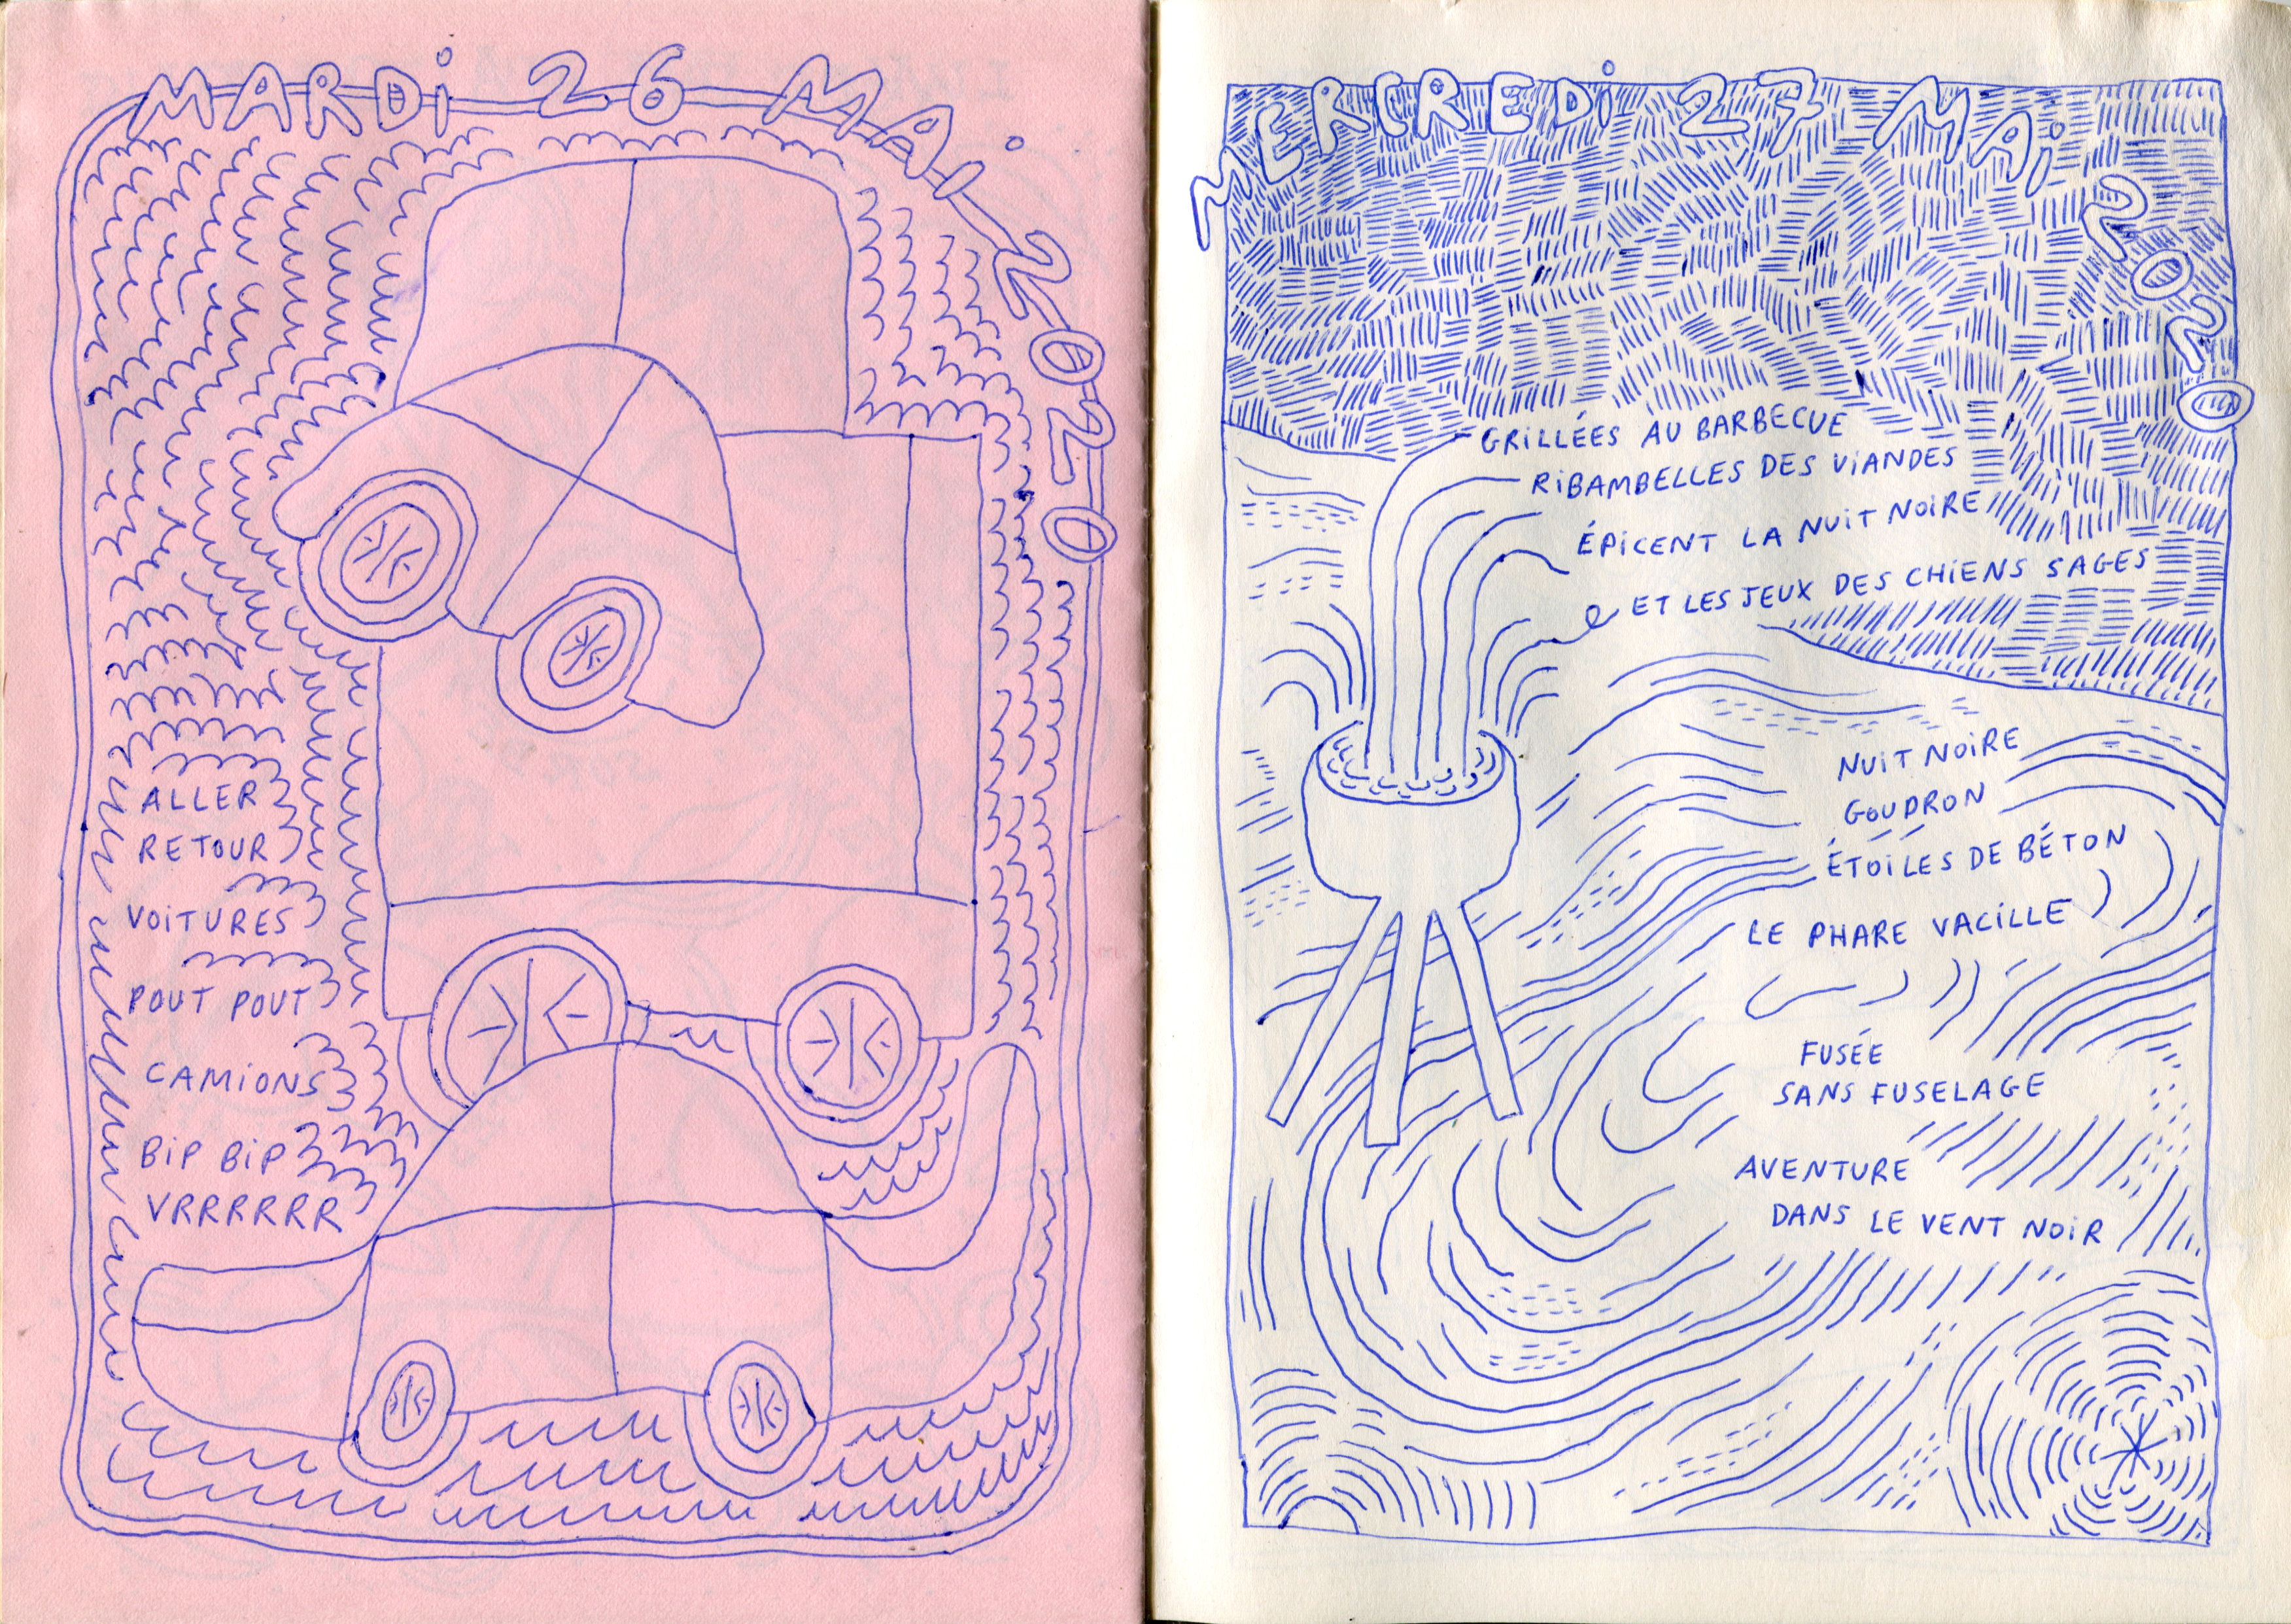 MARDi 26 MAi 2020
ALLER
RETOUR
VOiTURES
POUT POUT
CAMiONS
BiP BiP
VRRRRRR
MERCREDi 27 MAi 2020
GRiLLÉES AU BARBECUE
RiBAMBELLES DES ViANDES
ÉPiCENT LA NUiT NOiRE
ET LES JEUX DES CHiENS SAGES
NUiT NOiRE
GOUDRON
ÉTOiLES DE BÉTON
LE PHARE VACiLLE
FUSÉE
SANS FUSELAGE
AVENTURE
DANS LE VENT NOiR